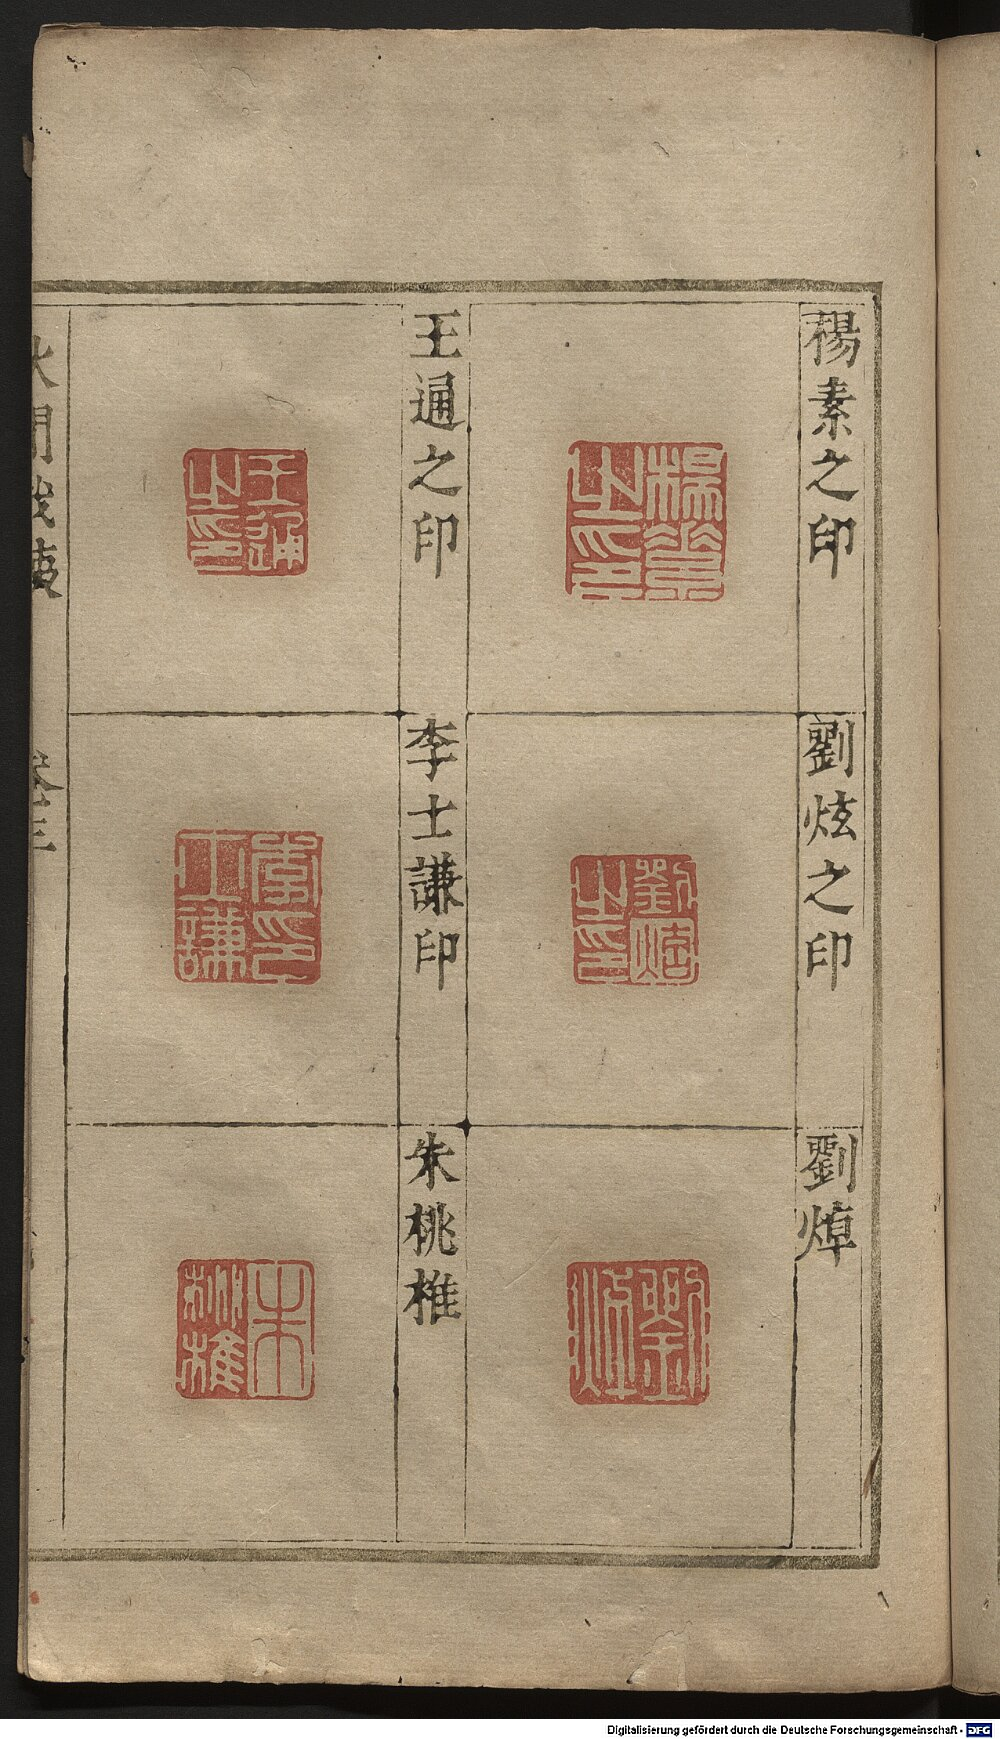 楊素之印
劉炫之印
劉焯
王通之印
李士謙印
朱桃椎
卷三
Digitalisierung gefördert durch die Deutsche Forschungsgemeinschaft - DFG